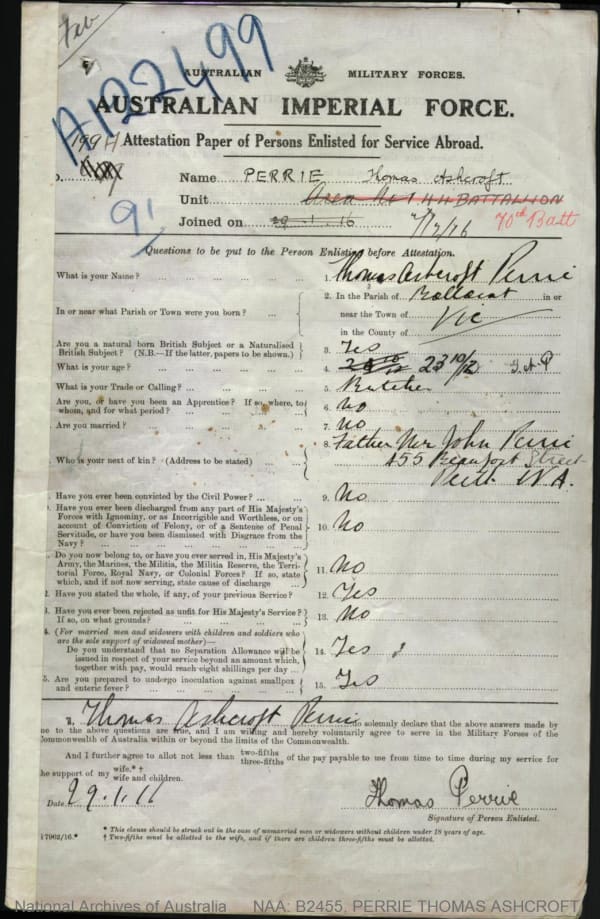 Feb
A122499
AUSTRALIAN MILITARY FORCES.
AUSTRALIAN IMPERIAL FORCE.
199A Attestation Paper of Persons Enlisted for Service Abroad.
Name PERRIE Thomas Ashcroft
Unit 44 BATTALION
70th Batt
Joined on 29.1.16
91
Questions to be put to the Person Enlisting before Attestation.
What is your Name? ... 1. Thomas Ashcroft Perrie
In or near what Parish or Town were you born? ... 2. In the Parish of Ballarat in or
near the Town of Vic
in the County of
Are you a natural born British Subject or a Naturalised
British Subject? (N.B.—If the latter, papers to be shown.) 3. Yes
What is your age? ... 4. 23 10/12
What is your Trade or Calling? ... 5. Butcher
Are you, or have you been an Apprentice? If so, where, to
whom, and for what period? ... 6. No
Are you married? ... 7. No
Who is your next of kin? (Address to be stated) ... 8. Father Mr John Perrie
455 Beaufort Street
Perth W.A.
Have you ever been convicted by the Civil Power? ... 9. No
Have you ever been discharged from any part of His Majesty's
Forces with Ignominy, or as Incorrigible and Worthless, or on
account of Conviction of Felony, or of a Sentence of Penal
Servitude, or have you been dismissed with Disgrace from the
Navy? ... 10. No
Do you now belong to, or have you ever served in, His Majesty's
Army, the Marines, the Militia, the Militia Reserve, the Terri-
torial Force, Royal Navy, or Colonial Forces? If so, state
which, and if not now serving, state cause of discharge 11. No
2. Have you stated the whole, if any, of your previous Service? 12. Yes
3. Have you ever been rejected as unfit for His Majesty's Service?
If so, on what grounds? ... 13. No
4. (For married men and widowers with children and soldiers who
are the sole support of widowed mother)—
Do you understand that no Separation Allowance will be
issued in respect of your service beyond an amount which,
together with pay, would reach eight shillings per day ... 14. Yes
5. Are you prepared to undergo inoculation against smallpox
and enteric fever? ... 15. Yes
I, Thomas Ashcroft Perrie do solemnly declare that the above answers made by
me to the above questions are true, and I am willing and hereby voluntarily agree to serve in the Military Forces of the
Commonwealth of Australia within or beyond the limits of the Commonwealth.
And I further agree to allot not less than two-fifths three-fifths of the pay payable to me from time to time during my service for
the support of my wife.*†
wife and children.
Date 29.1.16
Thomas Perrie
Signature of Person Enlisted.
* This clause should be struck out in the case of unmarried men or widowers without children under 18 years of age.
17962/16.* † Two-fifths must be allotted to the wife, and if there are children three-fifths must be allotted.
National Archives of Australia NAA: B2455, PERRIE THOMAS ASHCROFT